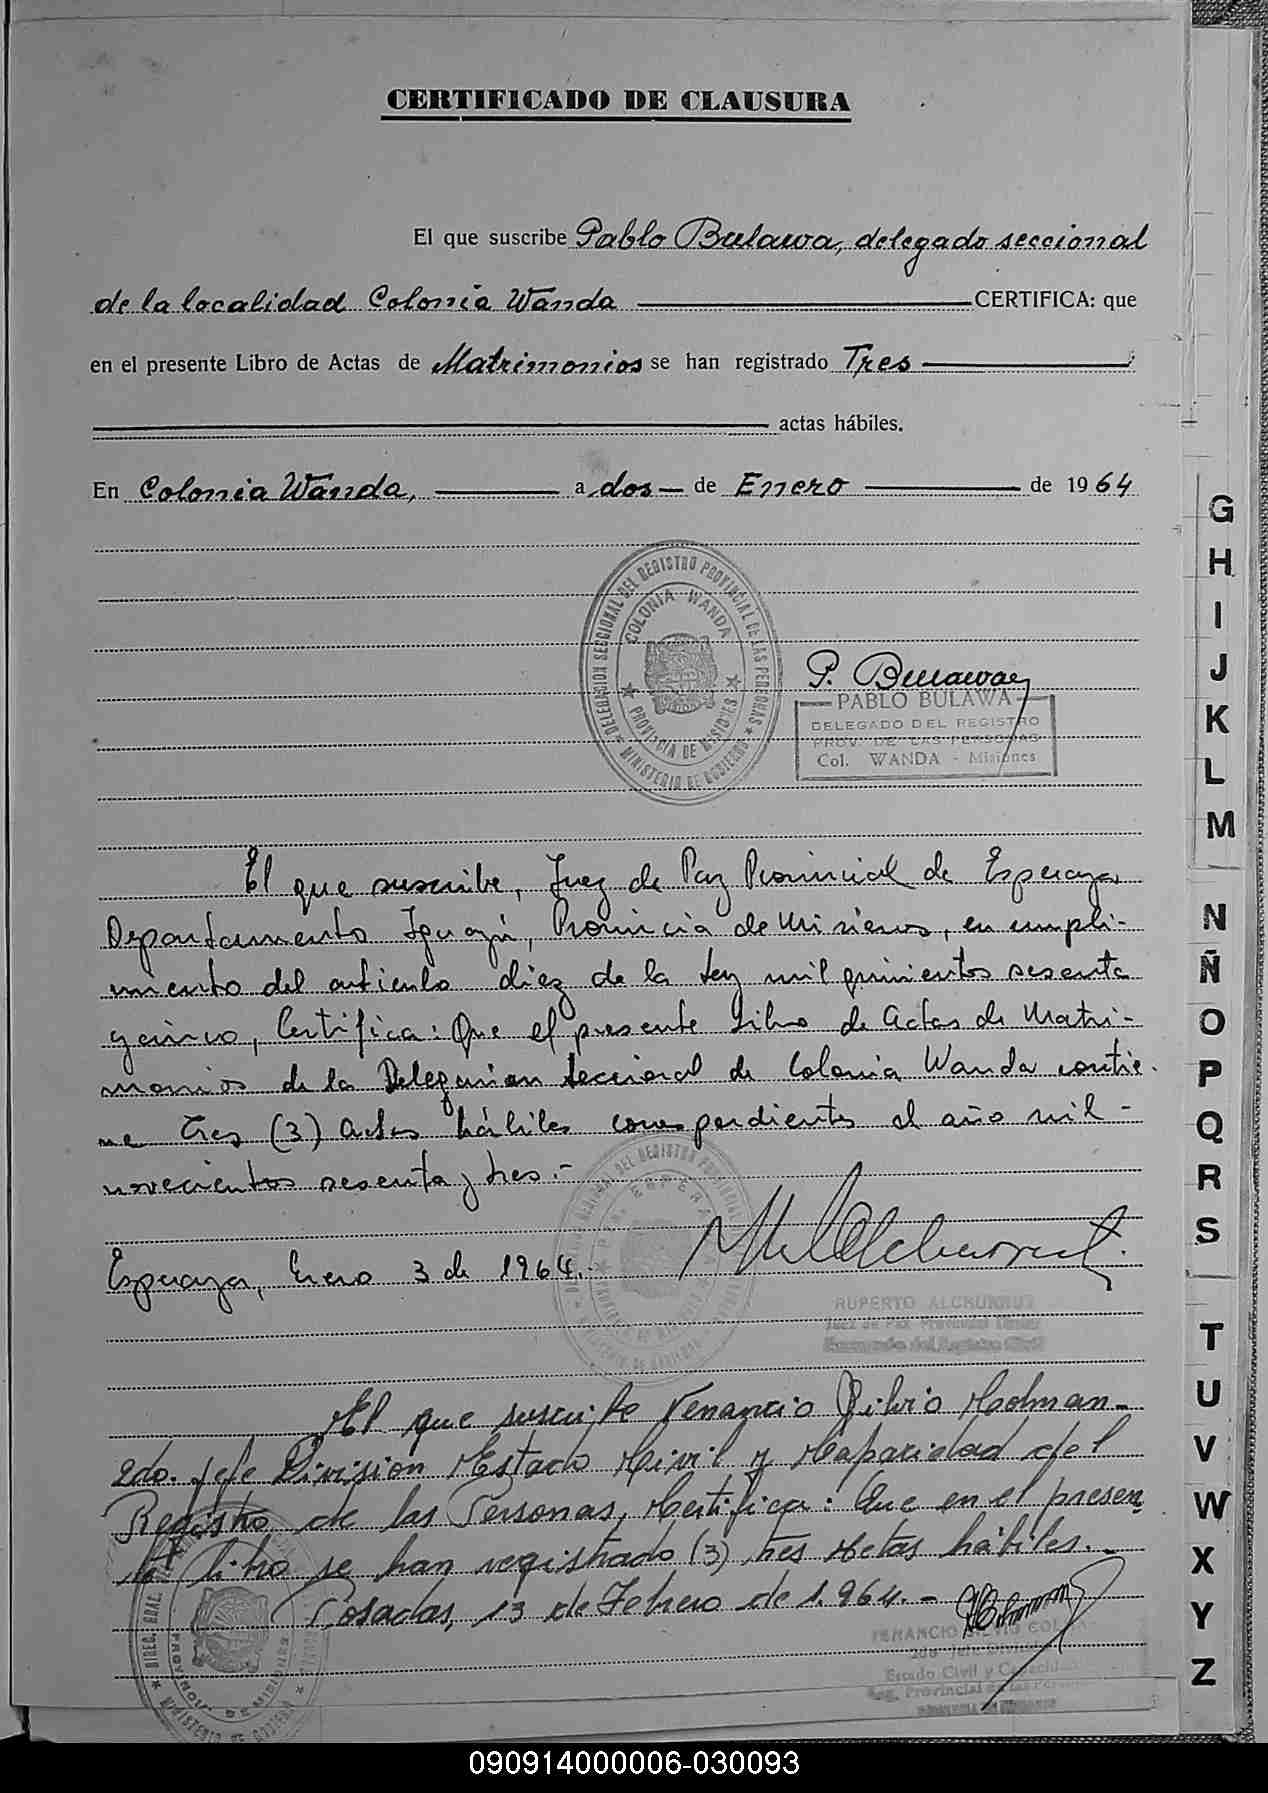 CERTIFICADO DE CLAUSURA
El que suscribe Pablo Bulawa, delegado seccional
de la localidad Colonia Wanda CERTIFICA: que
en el presente Libro de Actas de Matrimonios se han registrado Tres
actas hábiles.
En Colonia Wanda, a dos de Enero de 1964
DELEGACION SECCIONAL DEL REGISTRO PROVINCIAL DE LAS PERSONAS
COLONIA WANDA
PROVINCIA DE MISIONES
MINISTERIO DE GOBIERNO
P. Bulawa
PABLO BULAWA
DELEGADO DEL REGISTRO
PROV. DE LAS PERSONAS
Col. WANDA - Misiones
El que suscribe, Juez de Paz Provincial de Esperanza,
Departamento Iguazú, Provincia de Misiones, en cumpli-
miento del artículo diez de la Ley mil quinientos sesenta
y cinco, Certifica: Que el presente Libro de Actas de Matri-
monios de la Delegacion Seccional de Colonia Wanda contie-
ne tres (3) actas hábiles correspondientes al año mil-
novecientos sesenta y tres.-
Esperanza, Enero 3 de 1964.
RUPERTO ALCHURRUT
Juez de Paz Provincial
Encargado del Registro Civil
El que suscribe Venancio Silvio Colman-
2do. Jefe División Estado Civil y Capacidad del
Registro de las Personas, Certifica: Que en el presen-
te libro se han registrado (3) tres Actas hábiles.-
Posadas, 13 de Febrero de 1.964.-
VENANCIO SILVIO COLMAN
2do Jefe División
Estado Civil y Capacidad
Reg. Provincial de las Personas
G
H
I
J
K
L
M
N
Ñ
O
P
Q
R
S
T
U
V
W
X
Y
Z
090914000006-030093